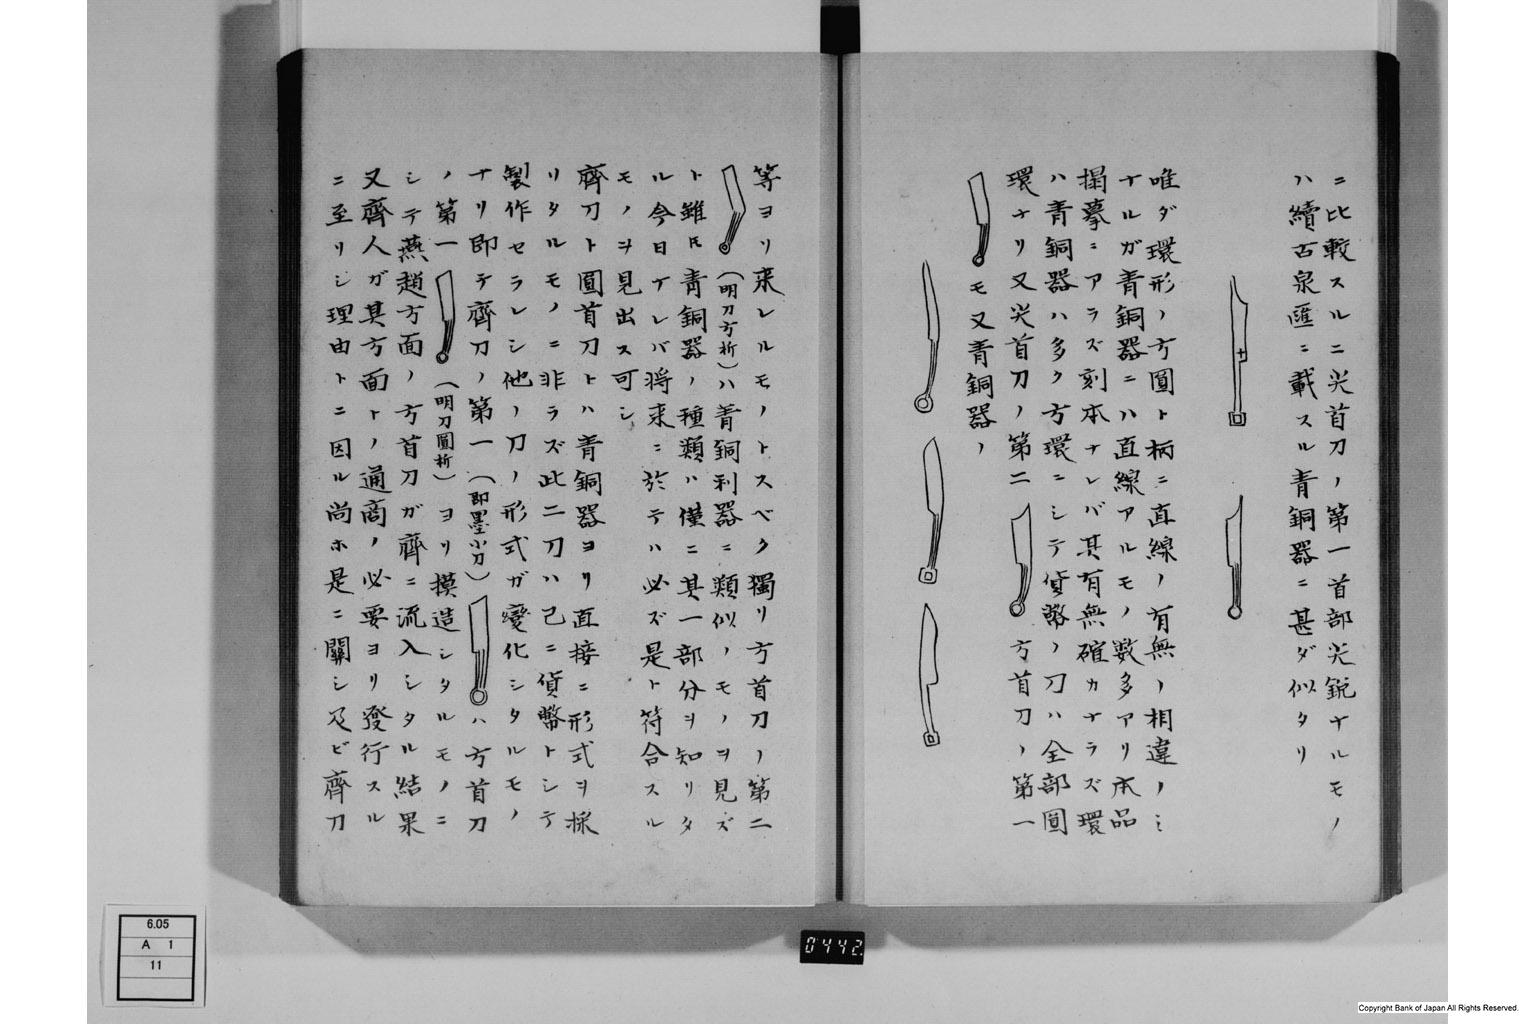 ニ比較スルニ尖首刀ノ第一首部尖鋭ナルモノ
ハ續古泉匯ニ載スル青銅器ニ甚ダ似タリ
唯ダ環形ノ方圓ト柄ニ直線ノ有無ノ相違ノミ
ナルガ青銅器ニハ直線アルモノ數多アリ本品
搨摹ニアラズ刻本ナレバ其有無確カナラズ環
ハ青銅器ハ多ク方環ニシテ貨幣ノ刀ハ全部圓
環ナリ又尖首刀ノ第二方首刀ノ第一
モ又青銅器ノ
等ヨリ来レルモノトスベク獨リ方首刀ノ第二
(明刀方折)ハ青銅利器ニ類似ノモノヲ見ズ
ト雖𪜈青銅器ノ種類ハ僅ニ其一部分ヲ知リタ
ル今日ナレバ将来ニ於テハ必ズ是ト符合スル
モノヲ見出ス可シ
齊刀ト圓首刀トハ青銅器ヨリ直接ニ形式ヲ採
リタルモノニ非ラズ此二刀ハ己ニ貨幣トシテ
製作セラレシ他ノ刀ノ形式ガ變化シタルモノ
ナリ即チ齊刀ノ第一(即墨小刀)ハ方首刀
ノ第一(明刀圓折)ヨリ摸造シタルモノニ
シテ燕趙方面ノ方首刀ガ齊ニ流入シタル結果
又齊人ガ其方面トノ通商ノ必要ヨリ發行スル
ニ至リシ理由トニ因ル尚ホ是ニ關シ及ビ齊刀
6.05
A 1
11
0442
Copyright Bank of Japan All Rights Reserved.